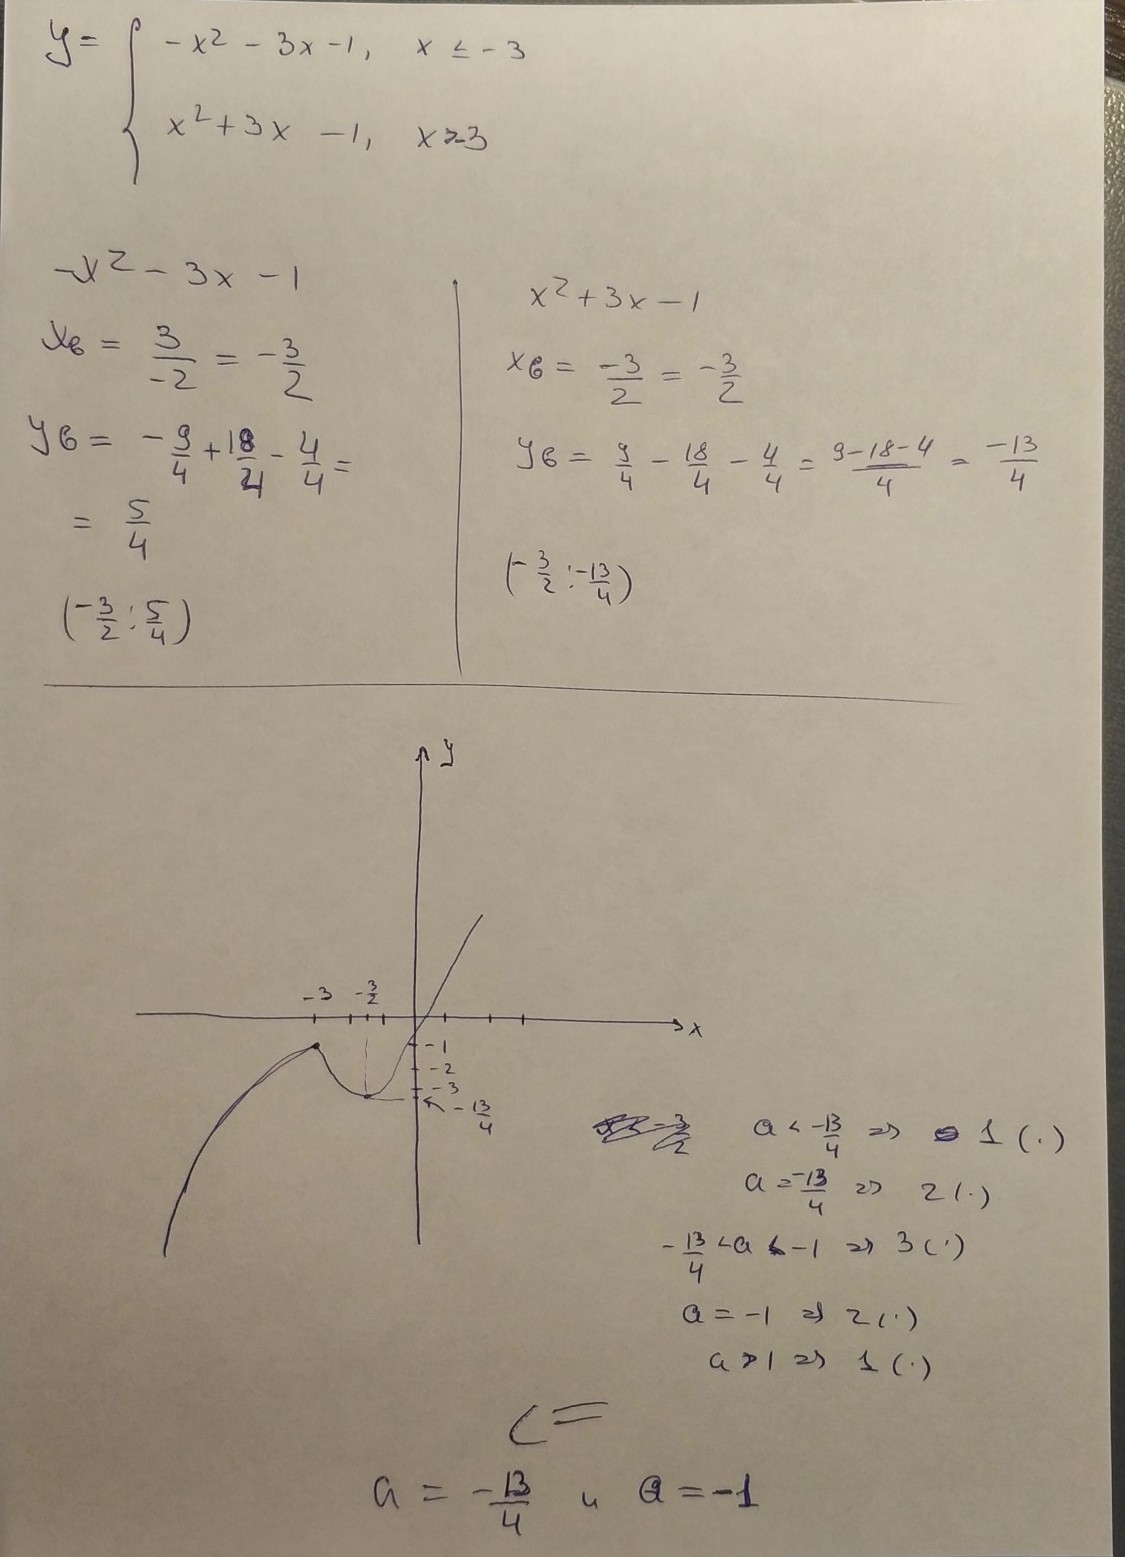 y = { -x² - 3x - 1, x ≤ -3
x² + 3x - 1, x > -3
-x² - 3x - 1
xв = 3/-2 = -3/2
yв = -9/4 + 18/4 - 4/4 =
= 5/4
(-3/2 ; 5/4)
x² + 3x - 1
xв = -3/2 = -3/2
yв = 9/4 - 18/4 - 4/4 = 9-18-4/4 = -13/4
(-3/2 ; -13/4)
y
-3 -3/2
x
-1
-2
-3
-13/4
a < -13/4 => 1 (·)
a = -13/4 => 2 (·)
-13/4 < a < -1 => 3 (·)
a = -1 => 2 (·)
a > 1 => 1 (·)
a = -13/4 и a = -1